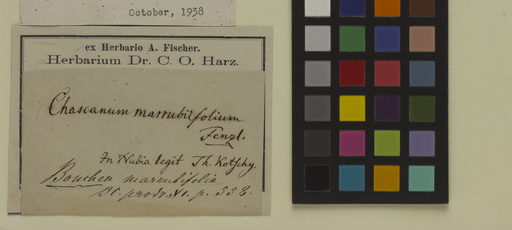 October, 1938
ex Herbario A. Fischer.
Herbarium Dr. C. O. Harz.
Chascanum marrubiifolium
Fenzl.
In Nubia legit Th. Kotschy.
Bouchea marrubifolia
DC. prodr. XI. p. 558.